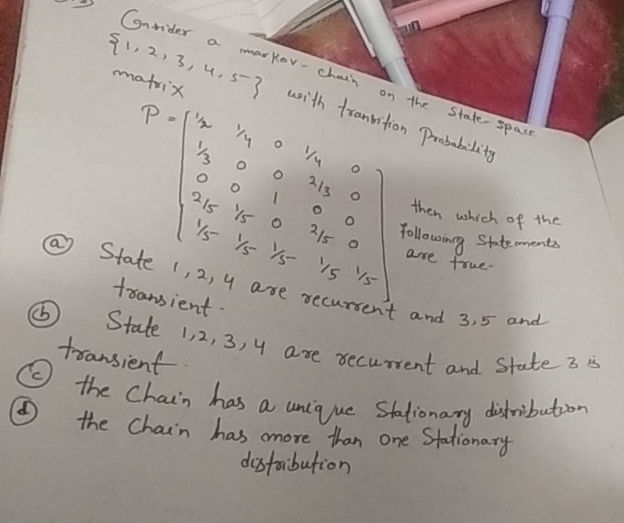 Consider a markov-chain on the state-space
{1, 2, 3, 4, 5} with transition Probability
matrix
P = [ 1/2 1/4 0 1/4 0
1/3 0 0 2/3 0
0 0 1 0 0
2/5 1/5 0 2/5 0
1/5 1/5 1/5 1/5 1/5 ]
then which of the
following Statements
are true-
(a) State 1, 2, 4 are recurrent and 3,5 and
transient.
(b) State 1,2,3,4 are recurrent and State 3 is
transient.
(c) the Chain has a unique Stationary distribution
(d) the chain has more than one Stationary
distribution